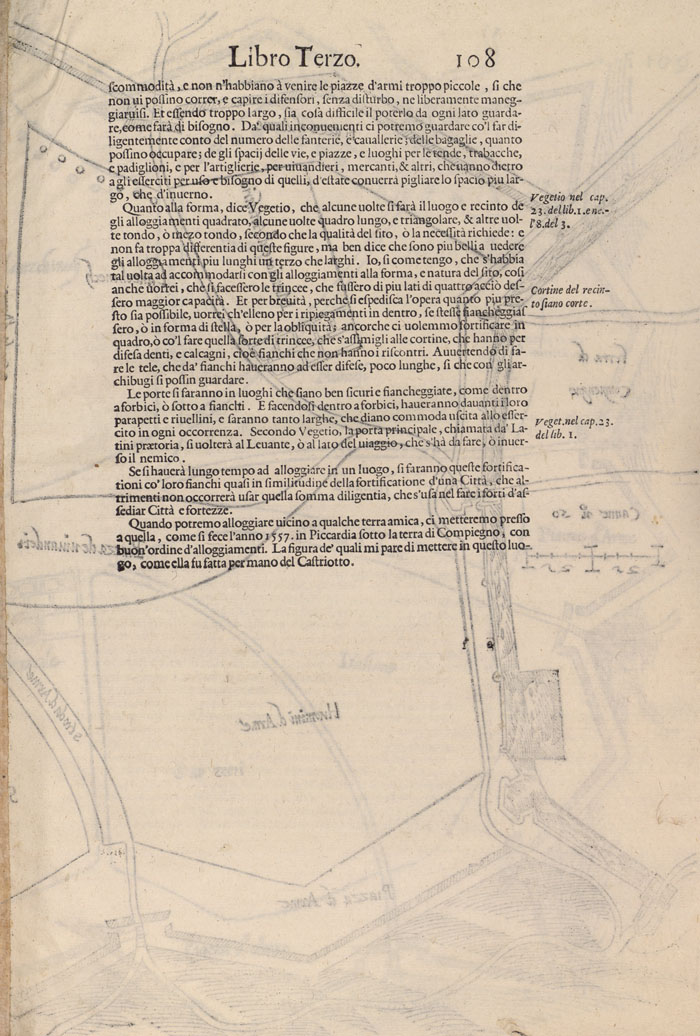 Libro Terzo. 108
scommodità, e non n'habbiano à venire le piazze d'armi troppo piccole, si che
non ui possino correr, e capire i difensori, senza disturbo, ne liberamente maneg-
giaruisi. Et essendo troppo largo, sia cosa difficile il poterlo da ogni lato guarda-
re, come farà di bisogno. Da' quali inconuenienti ci potremo guardare co'l far di-
ligentemente conto del numero delle fanterie, e cauallerie; delle bagaglie, quanto
possino occupare; de gli spacij delle vie, e piazze, e luoghi per le tende, trabacche,
e padiglioni, e per l'artiglierie, per uiuandieri, mercanti, & altri, che uanno dietro
a gli esserciti per uso e bisogno di quelli, d'estate conuerrà pigliare lo spacio piu lar-
go, che d'inuerno.
Quanto alla forma, dice Vegetio, che alcune uolte si farà il luogo e recinto de
gli alloggiamenti quadrato, alcune uolte quadro lungo, e triangolare, & altre uol-
te tondo, ò mezo tondo, secondo che la qualità del sito, ò la necessità richiede: e
non fa troppa differentia di queste figure, ma ben dice che sono piu belli a uedere
gli alloggiamenti piu lunghi un terzo che larghi. Io, si come tengo, che s'habbia
tal uolta ad accommodarsi con gli alloggiamenti alla forma, e natura del sito, così
anche uorrei, che si facessero le trincee, che fussero di piu lati di quattro acciò des-
sero maggior capacità. Et per breuità, perche si espedisca l'opera quanto piu pre-
sto sia possibile, uorrei ch'elleno per i ripiegamenti in dentro, se stesse fiancheggias
sero, ò in forma di stella, ò per la obliquità; ancorche ci uolemmo fortificare in
quadro, ò co'l fare quella sorte di trincee, che s'assimigli alle cortine, che hanno per
difesa denti, e calcagni, cioè fianchi che non hanno i riscontri. Auuertendo di fa-
re le tele, che da' fianchi haueranno ad esser difese, poco lunghe, si che con gli ar-
chibugi si possin guardare.
Le porte si faranno in luoghi che siano ben sicuri e fiancheggiate, come dentro
a forbici, ò sotto a fianchi. E facendosi dentro a forbici, haueranno dauanti i loro
parapetti e riuellini, e saranno tanto larghe, che diano commoda uscita allo esser-
cito in ogni occorrenza. Secondo Vegetio, la porta principale, chiamata da' La-
tini prætoria, si uolterà al Leuante, ò al lato del uiaggio, che s'hà da fare, ò inuer-
so il nemico.
Se si hauerà lungo tempo ad alloggiare in un luogo, si faranno queste fortifica-
tioni co' loro fianchi quasi in similitudine della fortificatione d'una Città, che al-
trimenti non occorrerà usar quella somma diligentia, che s'usa nel fare i forti d'as-
sediar Città e fortezze.
Quando potremo alloggiare uicino a qualche terra amica, ci metteremo presso
a quella, come si fece l'anno 1557. in Piccardia sotto la terra di Compiegno, con
buon'ordine d'alloggiamenti. La figura de' quali mi pare di mettere in questo luo-
go, come ella fu fatta per mano del Castriotto.
Vegetio nel cap.
23. del lib. 1. e ne-
l'8. del 3.
Cortine del recin-
to siano corte.
Veget. nel cap. 23.
del lib. 1.